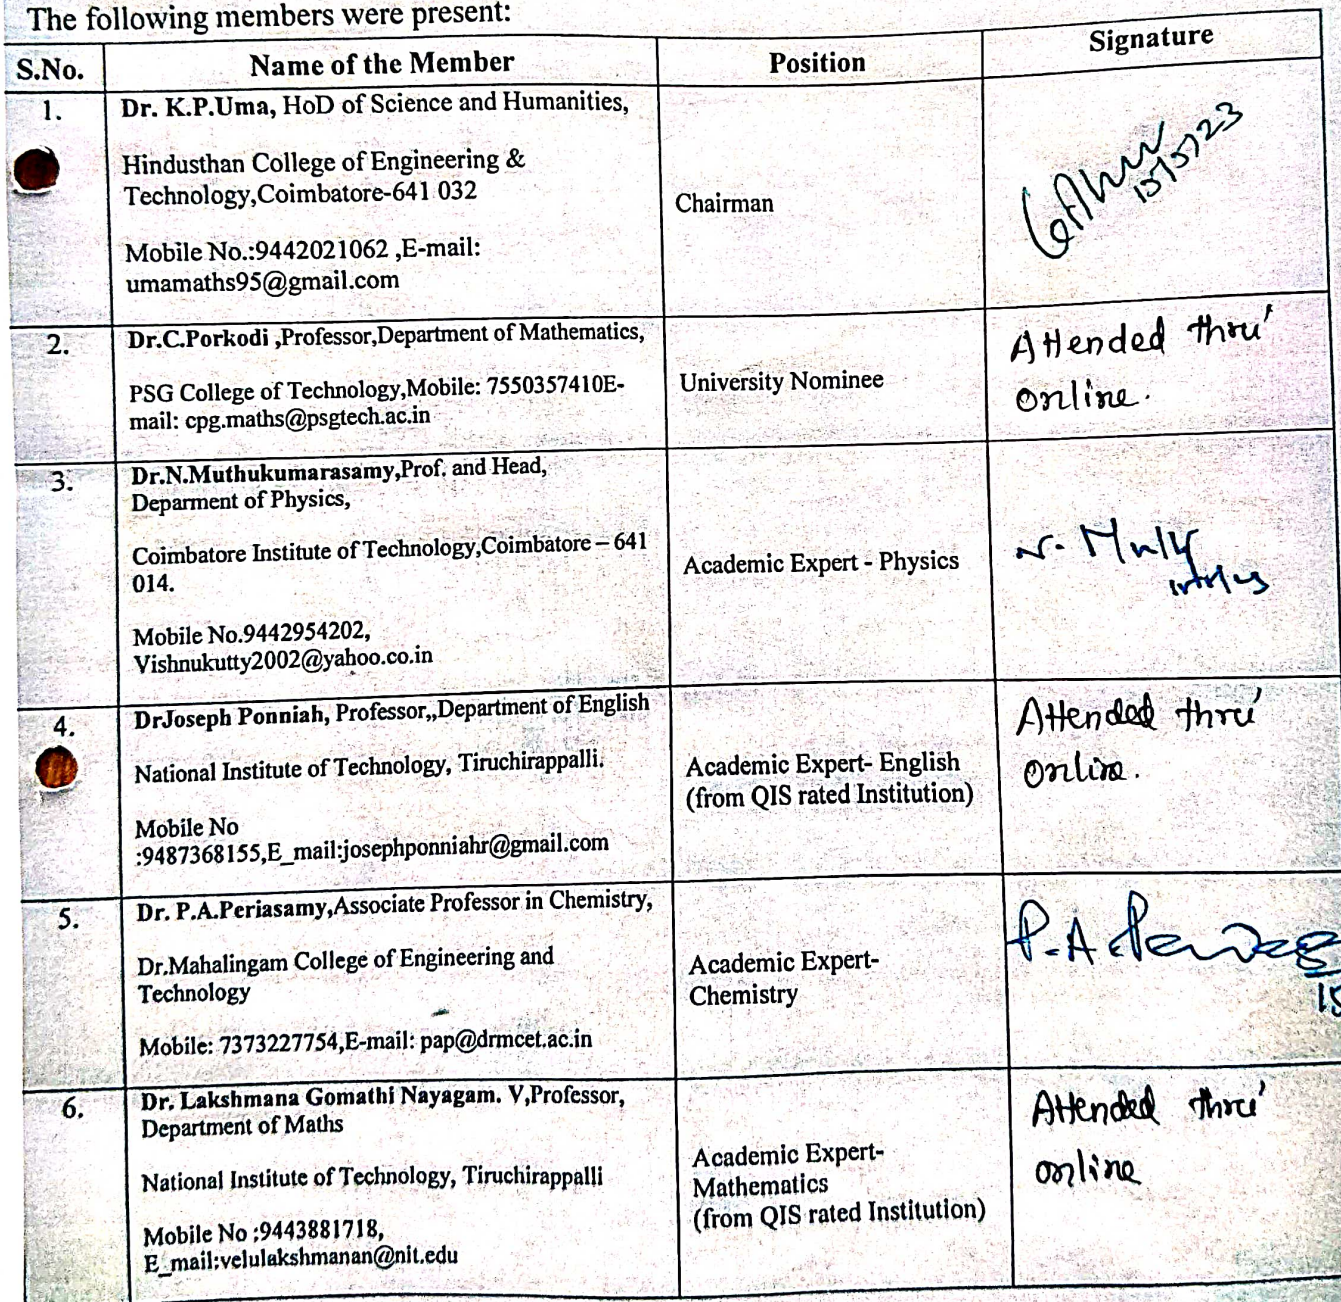 The following members were present:
S.No.
Name of the Member
Position
Signature
1.
Dr. K.P.Uma, HoD of Science and Humanities,
Hindusthan College of Engineering &
Technology,Coimbatore-641 032
Mobile No.:9442021062 ,E-mail:
umamaths95@gmail.com
Chairman
15/5/23
2.
Dr.C.Porkodi ,Professor,Department of Mathematics,
PSG College of Technology,Mobile: 7550357410E-
mail: cpg.maths@psgtech.ac.in
University Nominee
Attended thru'
online.
3.
Dr.N.Muthukumarasamy,Prof. and Head,
Deparment of Physics,
Coimbatore Institute of Technology,Coimbatore – 641
014.
Mobile No.9442954202,
Vishnukutty2002@yahoo.co.in
Academic Expert - Physics
4.
DrJoseph Ponniah, Professor,,Department of English
National Institute of Technology, Tiruchirappalli.
Mobile No
:9487368155,E_mail:josephponniahr@gmail.com
Academic Expert- English
(from QIS rated Institution)
Attended thru'
online.
5.
Dr. P.A.Periasamy,Associate Professor in Chemistry,
Dr.Mahalingam College of Engineering and
Technology
Mobile: 7373227754,E-mail: pap@drmcet.ac.in
Academic Expert-
Chemistry
P.A.
15
6.
Dr. Lakshmana Gomathi Nayagam. V,Professor,
Department of Maths
National Institute of Technology, Tiruchirappalli
Mobile No :9443881718,
E_mail:velulakshmanan@nit.edu
Academic Expert-
Mathematics
(from QIS rated Institution)
Attended thru'
online